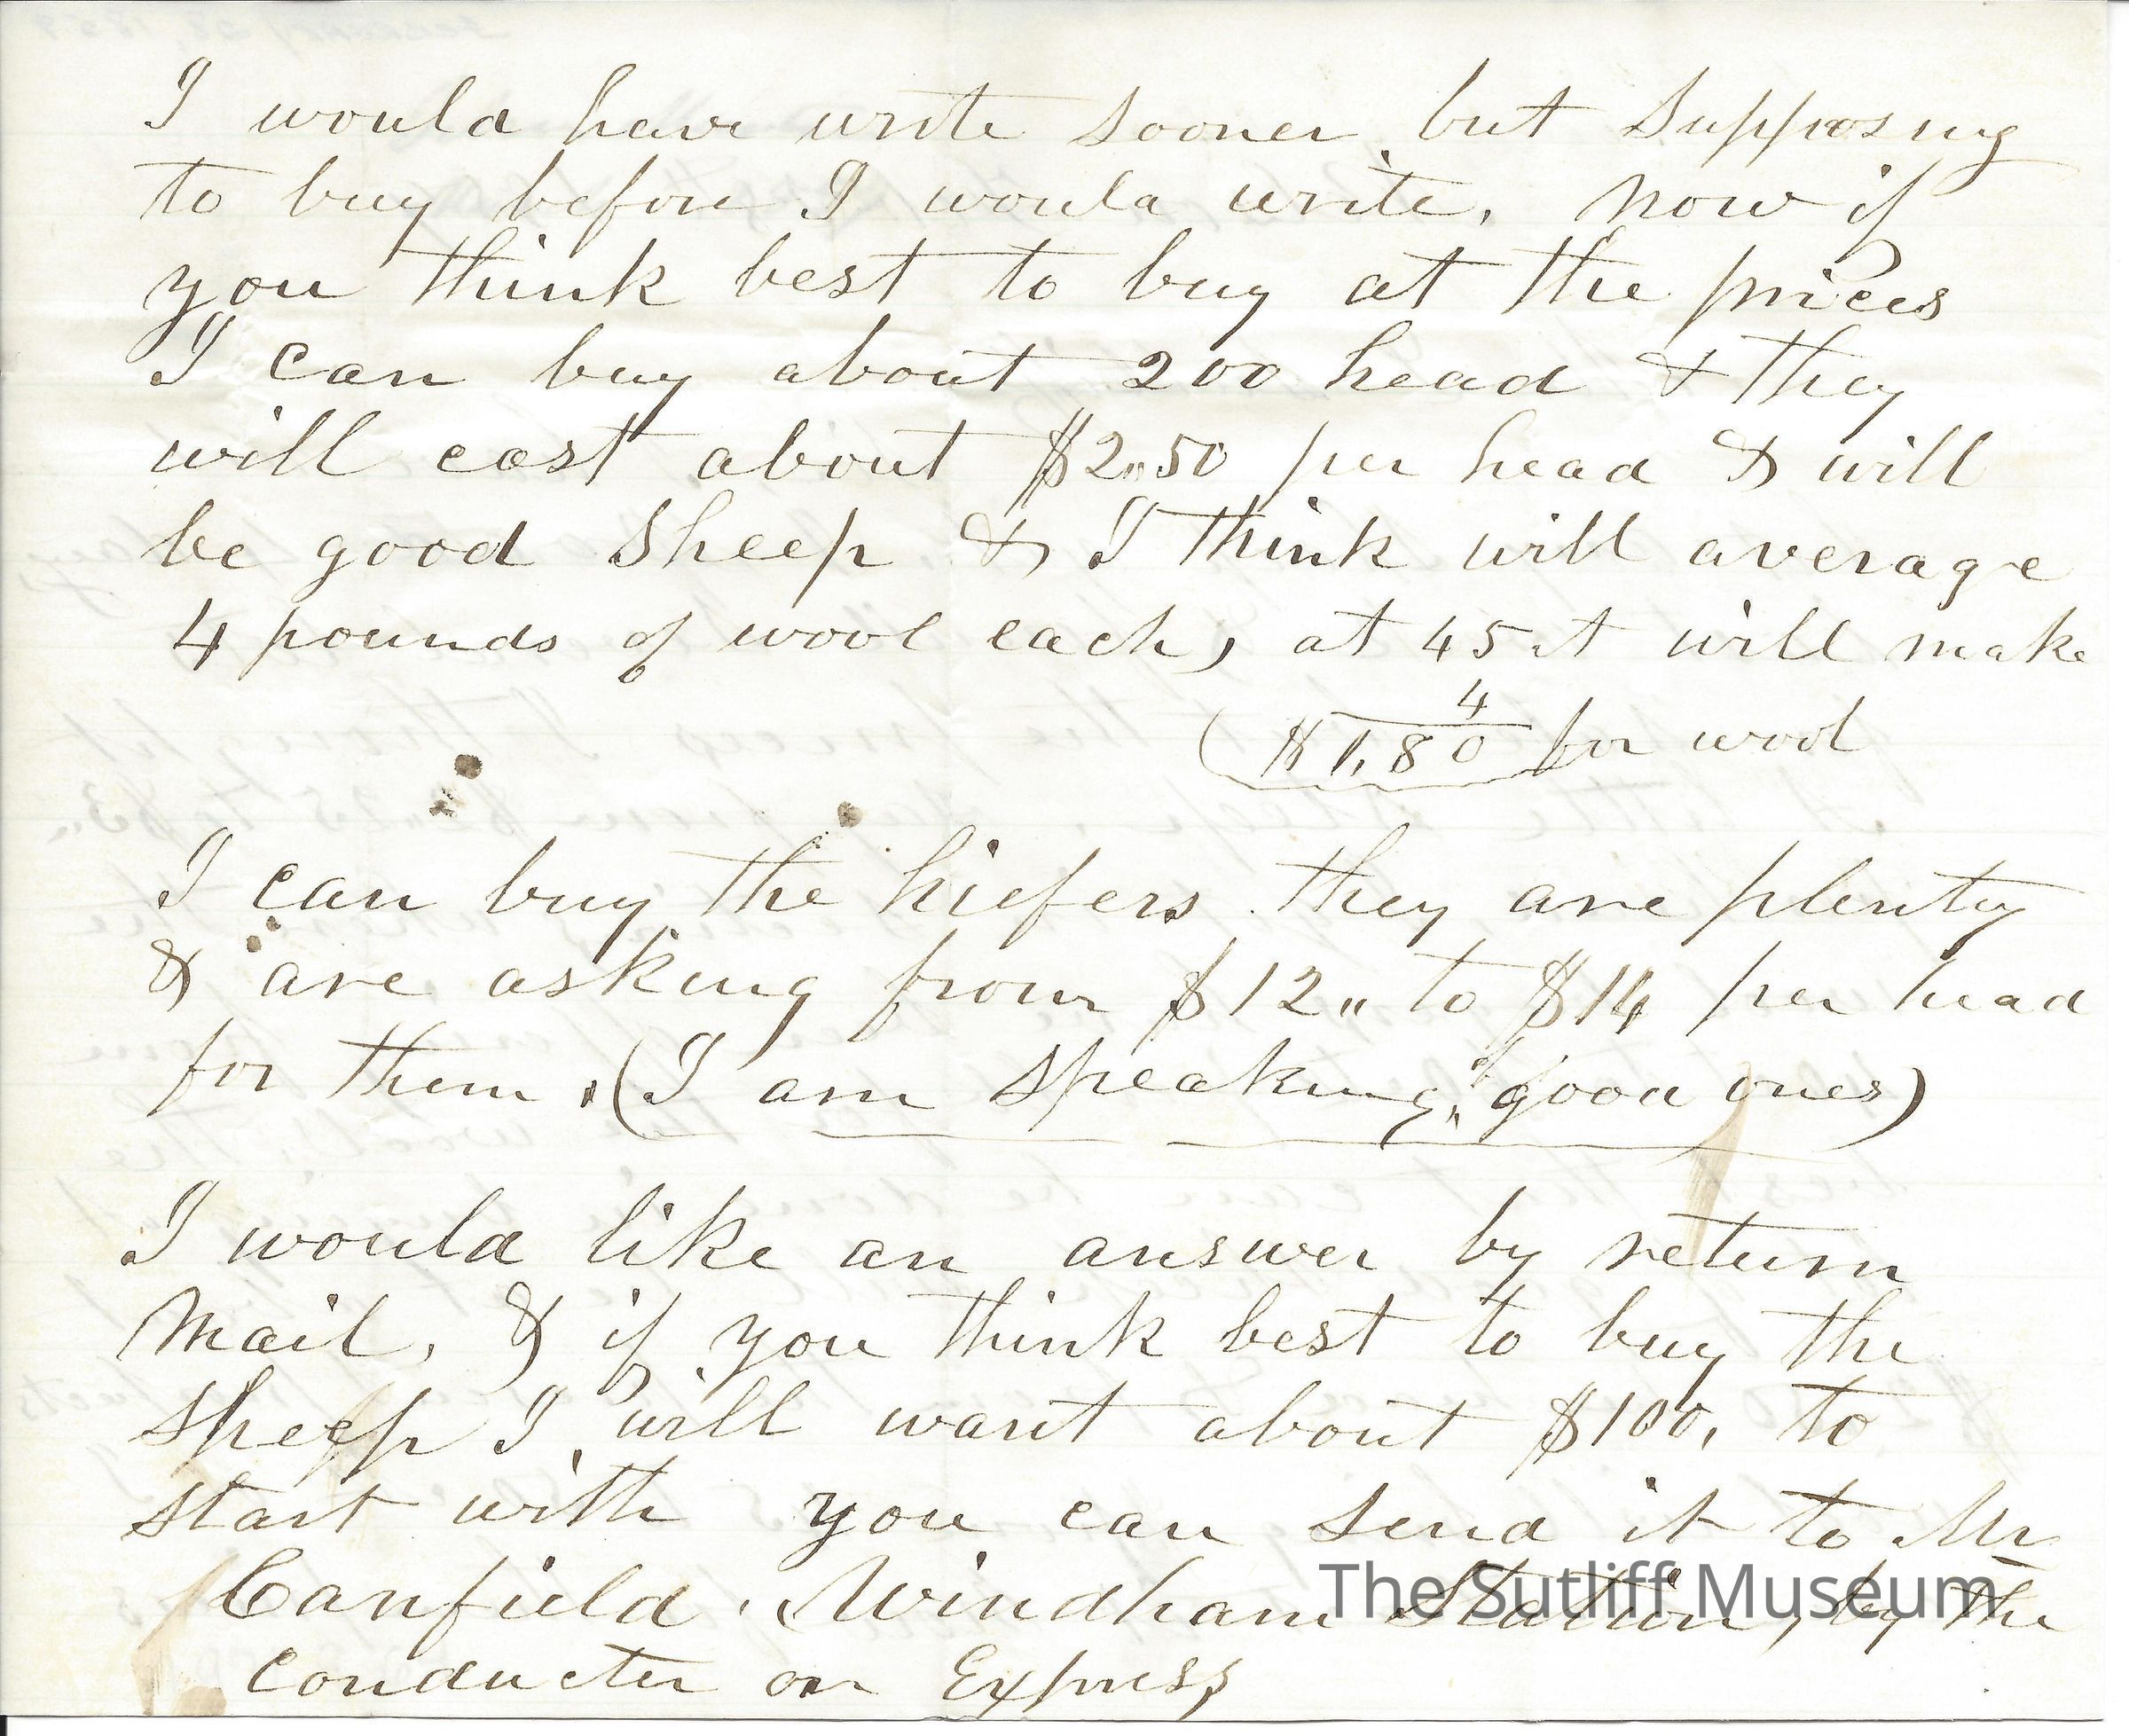 I would have write sooner but supposing
to buy before I would write, now if
you think best to buy at the prices
I can buy about 200 head & they
will cost about $2.,50 per head & will
be good sheep & I think will average
4 pounds of wool each, at 45 it will make
4
($1,80 for wool
I can buy the hiefers they are plenty
& are asking from $12,, to $14 per head
for them. (I am speaking of good ones)
I would like an answer by return
mail, & if you think best to buy the
sheep I will want about $100, to
start with you can send it to Mr
Canfield, Windham Station, by the
conducter on Express
The Sutliff Museum